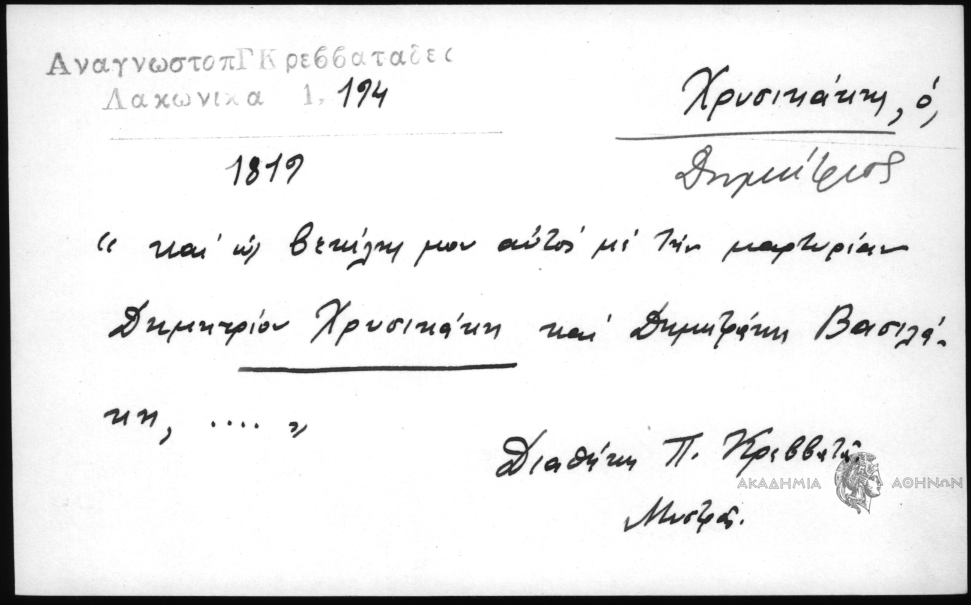 ΑναγνωστοπΓΚρεββαταδες
Λακωνικα 1, 194
Χρυσικάκη, ὁ,
1819
Δημήτριος
“ καί ὡς βεκίλη μου αὐτός μέ τήν μαρτυρίαν
Δημητρίου Χρυσικάκη καί Δημητράκη Βασιλά-
κη, .... „
Διαθήκη Π. Κρεββατᾶ.
ΑΚΑΔΗΜΙΑ ΑΘΗΝΩΝ
Μυστρᾶς.